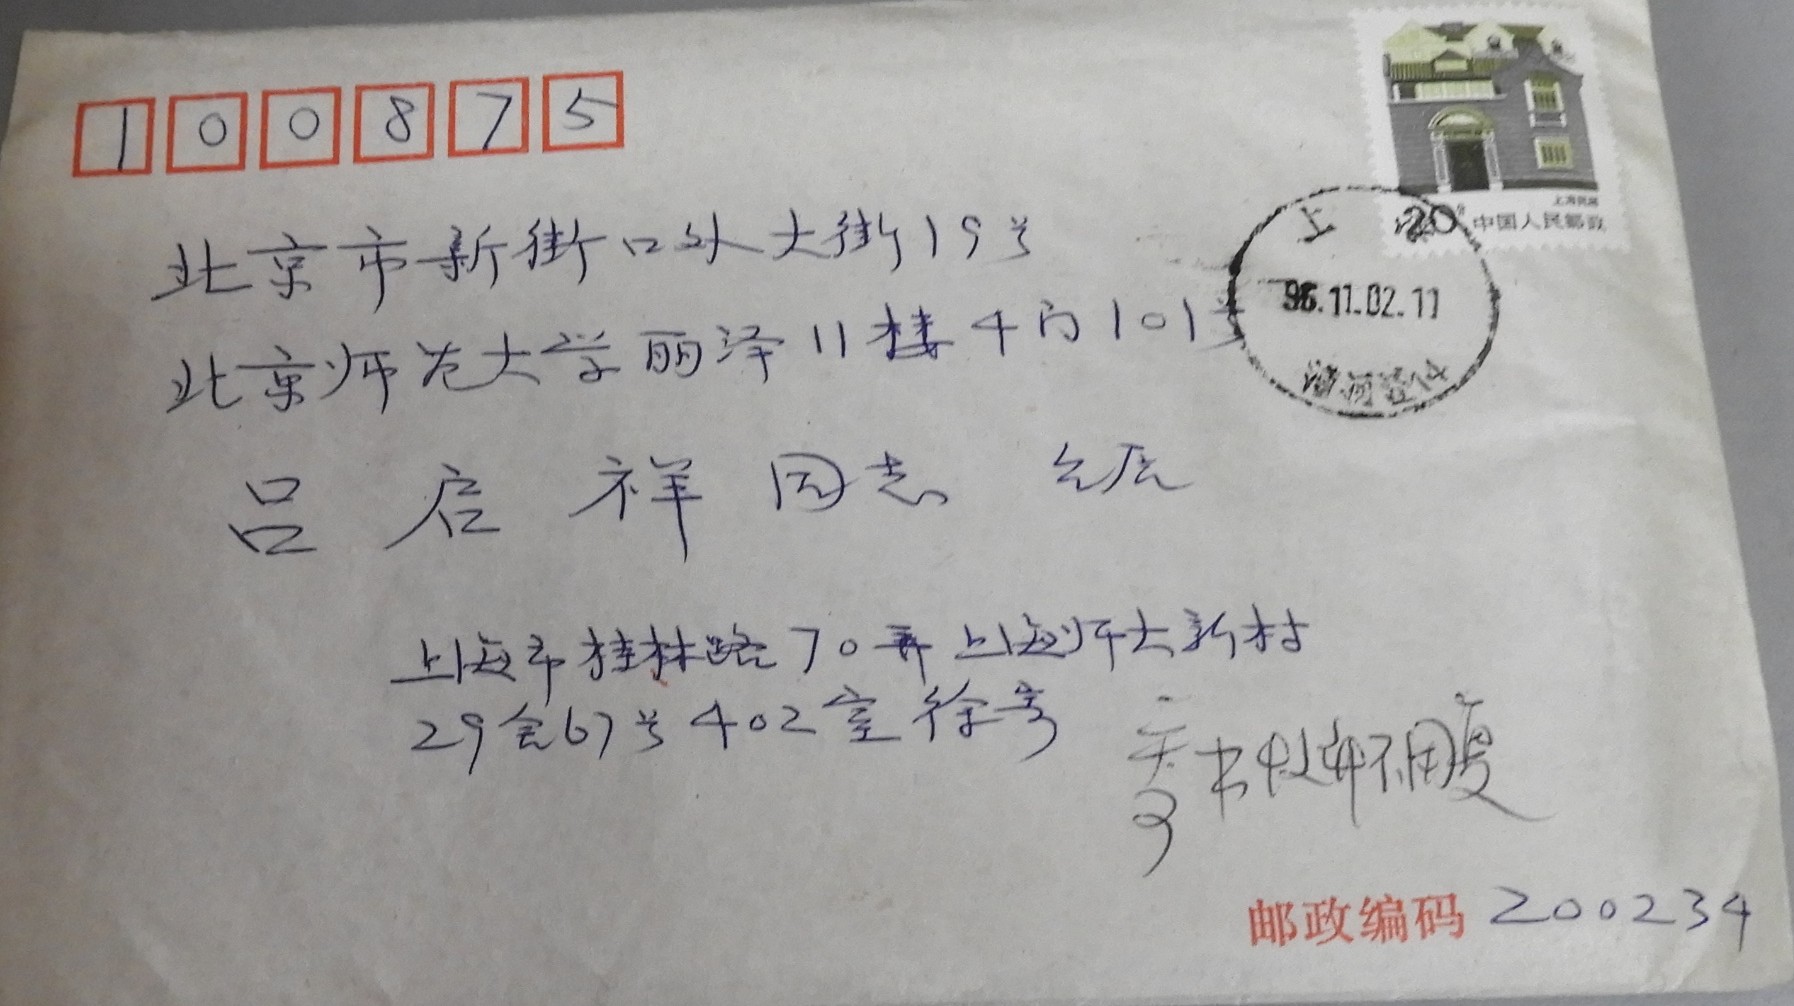 100875
上海民居
20分 中国人民邮政
北京市新街口外大街19号
上海
96.11.02.11
北京师范大学丽泽11楼4门101号
漕河泾
吕启祥同志 台启
上海市桂林路70弄上海师大新村
29舍67号402室 徐寄
书收 不用复
邮政编码 200234